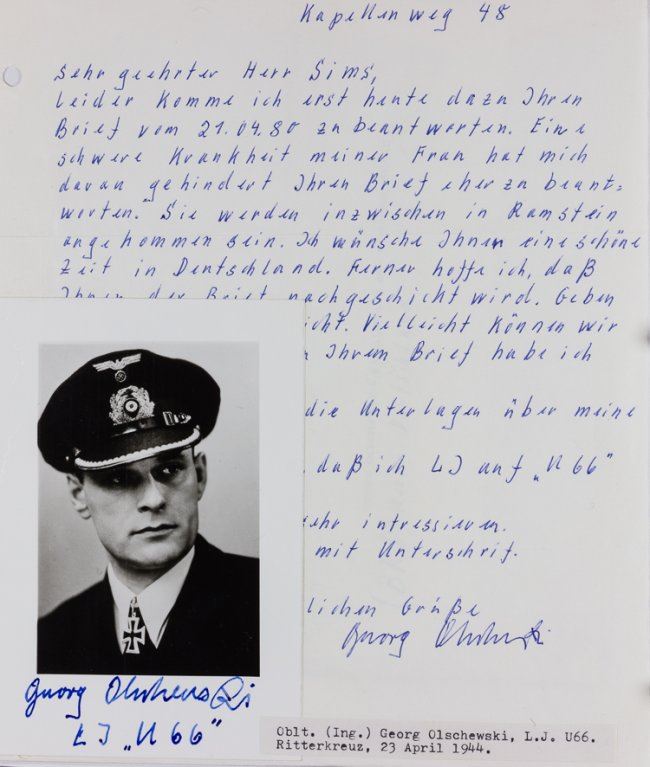 Kapellenweg 48
Sehr geehrter Herr Sims,
leider komme ich erst heute dazu Ihren
Brief vom 21.04.80 zu beantworten. Eine
schwere Krankheit meiner Frau hat mich
daran gehindert Ihren Brief eher zu beant=
worten. Sie werden inzwischen in Ramstein
angekommen sein. Ich wünsche Ihnen eine schöne
Zeit in Deutschland. Ferner hoffe ich, daß
Ihnen der Brief nachgeschickt wird. Geben
icht. Vielleicht können wir
Ihrem Brief habe ich
die Unterlagen über meine
daß ich LI auf „U 66"
sehr intressieren.
mit Unterschrif.
lichen Grüße
Georg Olschewski
Georg Olschewski
LI „U 66"
Oblt. (Ing.) Georg Olschewski, L.J. U66.
Ritterkreuz, 23 April 1944.